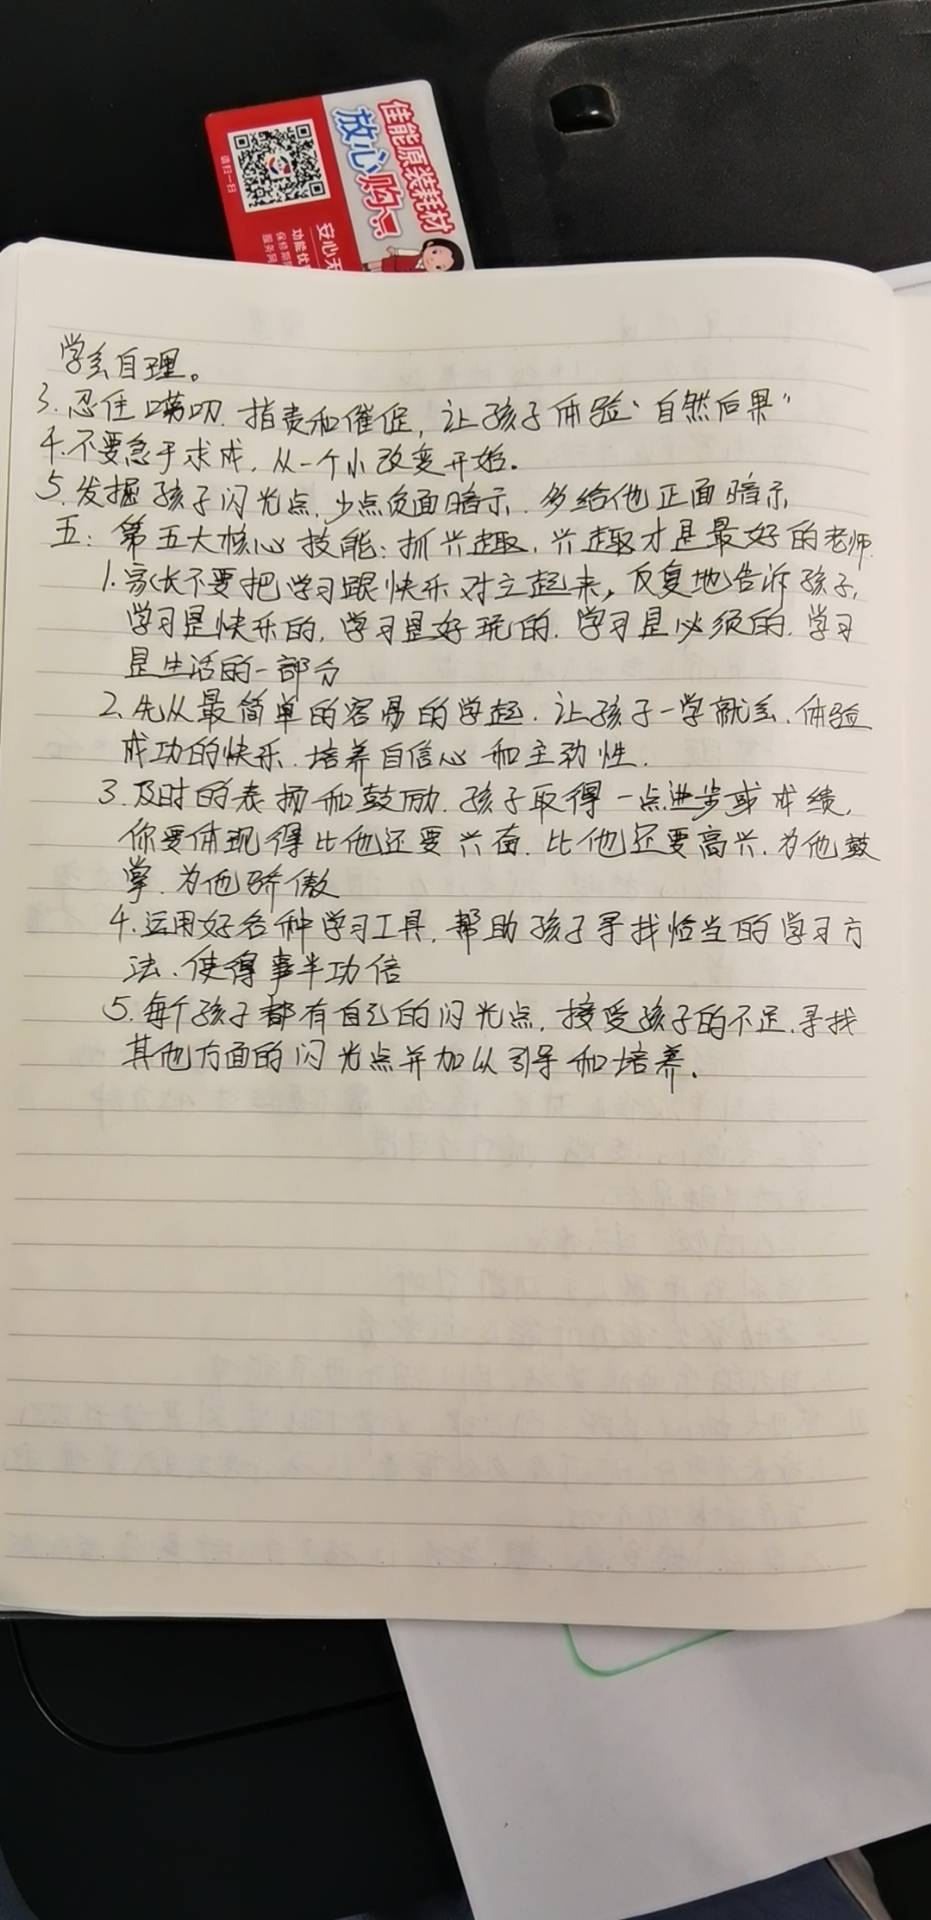 佳能原装耗材
放心购
请扫一扫
安心无
功能优
保修期
服务网
学会自理。
3.忍住唠叨.指责和催促，让孩子体验“自然后果”
4.不要急于求成，从一个小改变开始。
5.发掘孩子闪光点，少点负面暗示，多给他正面暗示
五：第五大核心技能：抓兴趣，兴趣才是最好的老师.
1.家长不要把学习跟快乐对立起来，反复地告诉孩子，
学习是快乐的，学习是好玩的，学习是必须的，学习
是生活的一部分
2.先从最简单的容易的学起，让孩子一学就会，体验
成功的快乐，培养自信心和主动性.
3.及时的表扬和鼓励，孩子取得一点进步或成绩，
你要体现得比他还要兴奋，比他还要高兴，为他鼓
掌，为他骄傲
4.运用好各种学习工具，帮助孩子寻找恰当的学习方
法，使得事半功倍
5.每个孩子都有自己的闪光点，接受孩子的不足，寻找
其他方面的闪光点并加以引导和培养.